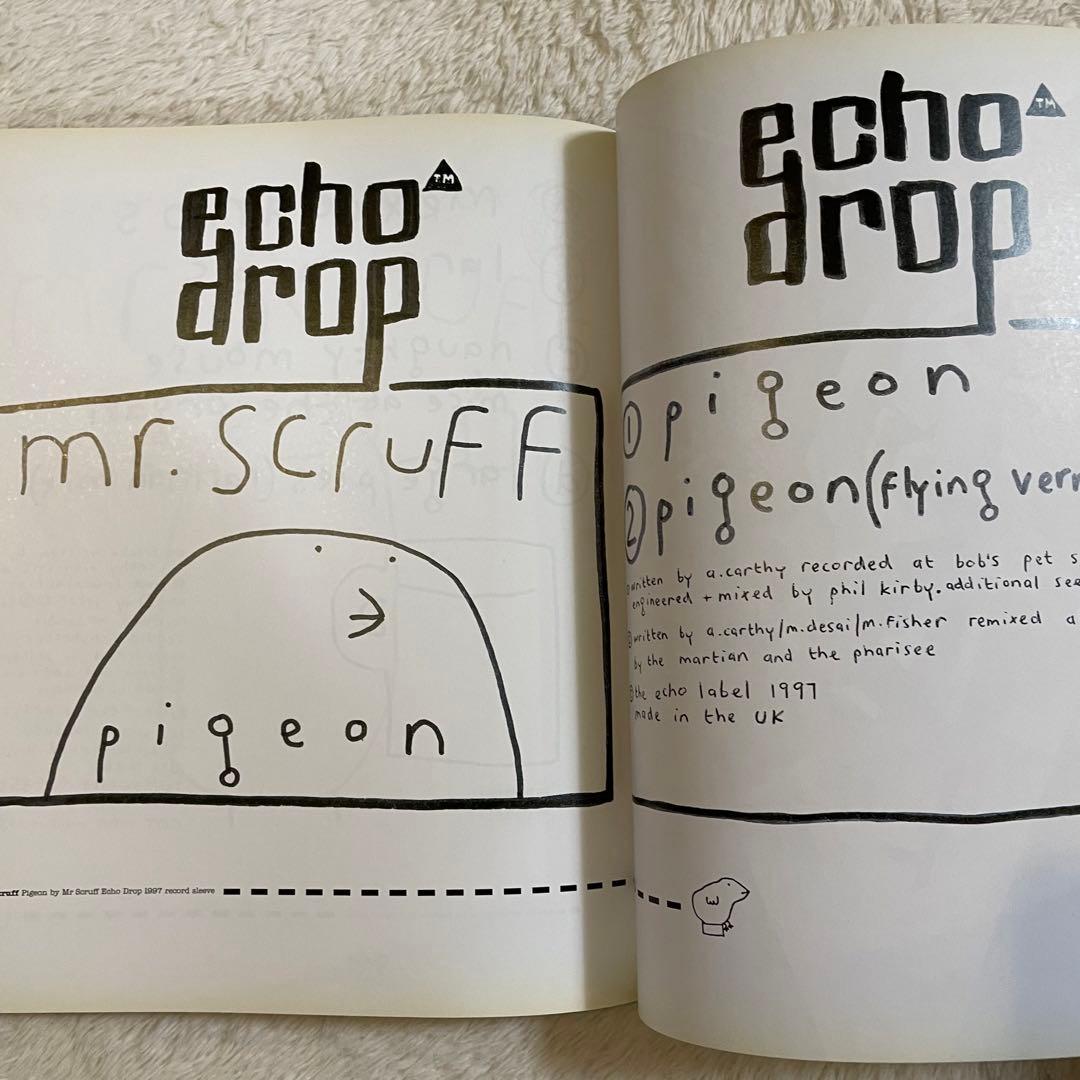 echo TM
drop
mr. scruff
pigeon
Pigeon by Mr Scruff Echo Drop 1997 record sleeve
echo TM
drop
① pigeon
② pigeon (flying
written by a.carthy recorded at bob's pet
engineered + mixed by phil kirby. additional
written by a.carthy/m.desai/m.fisher remixed
by the martian and the pharisee
the echo label 1997
made in the UK